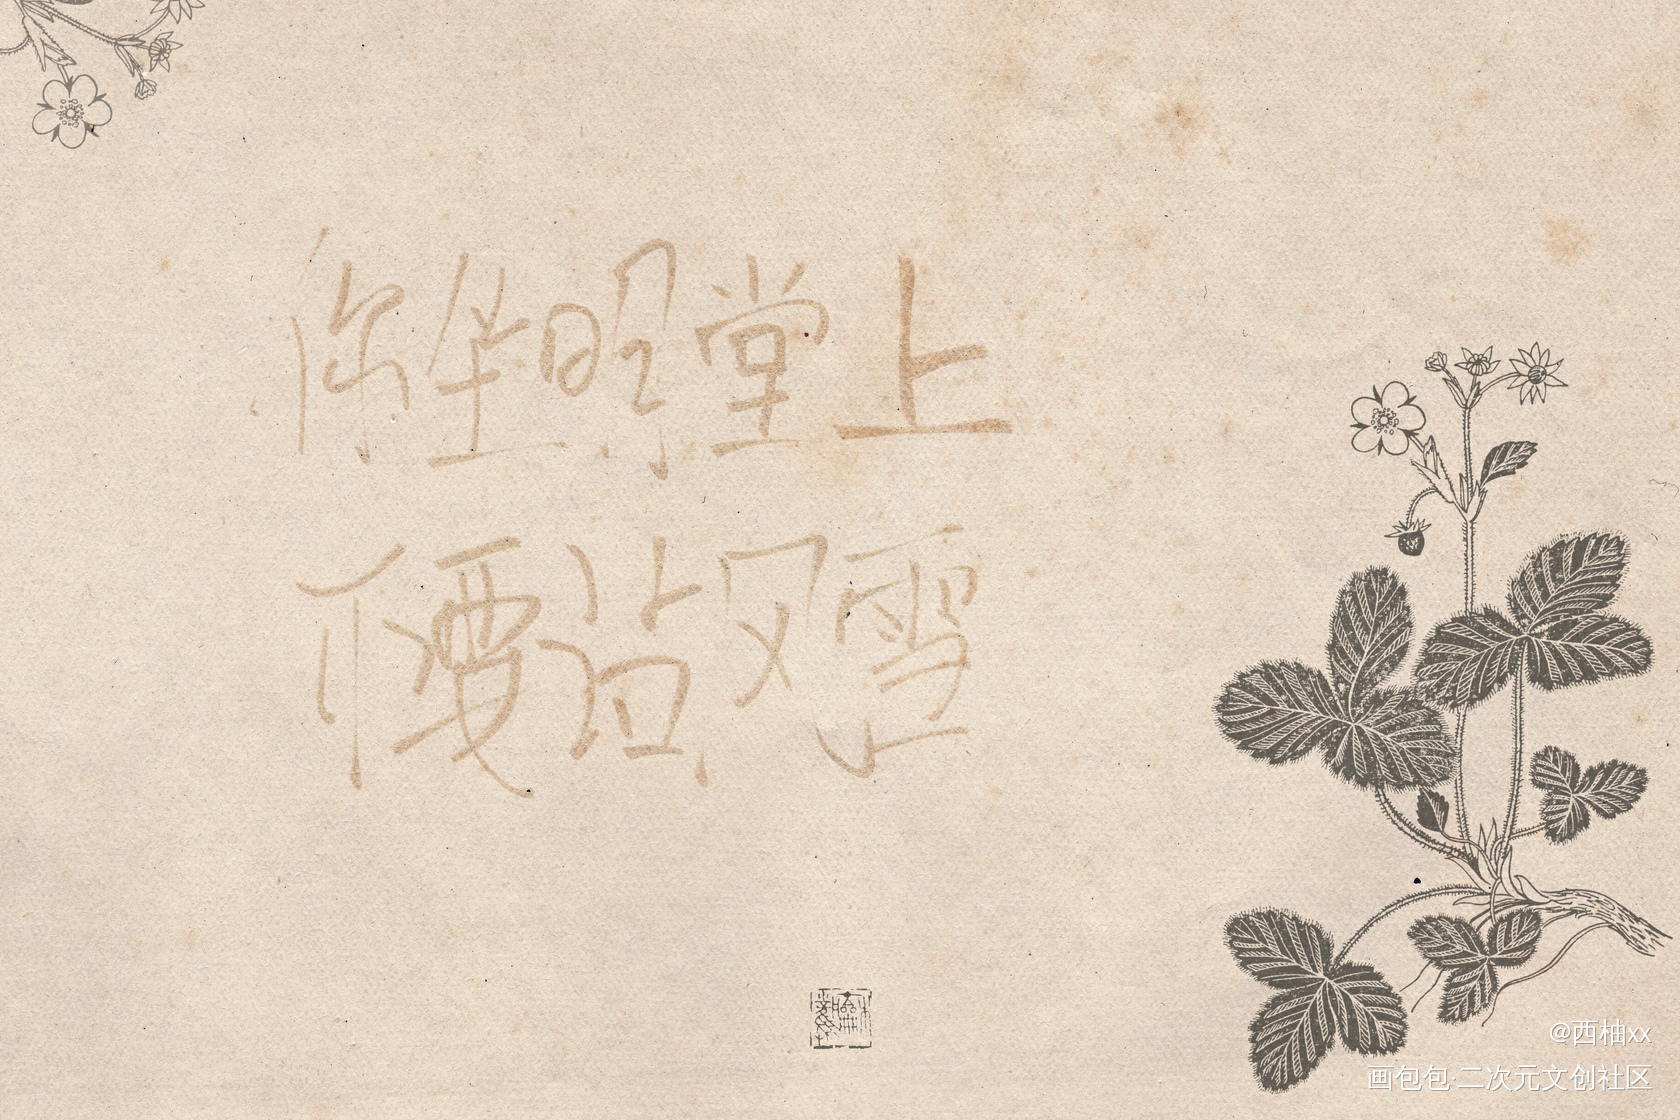 你坐明堂上
不要沾风雪
@西柚xx
画包包·二次元文创社区